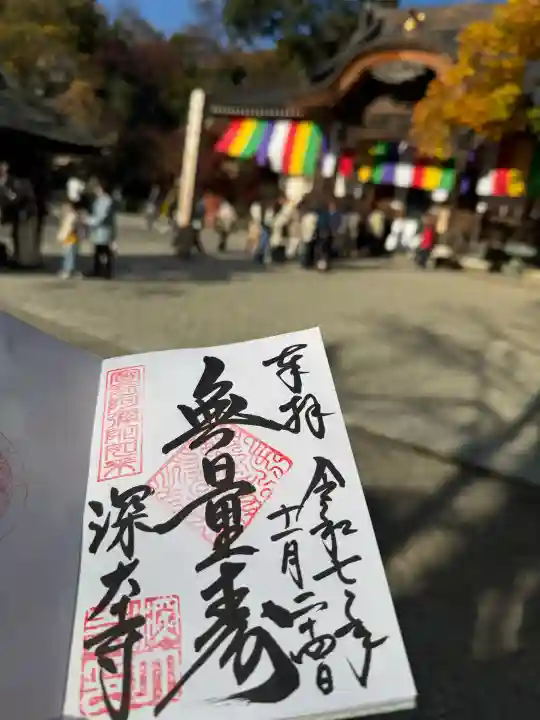 奉拝
令和七年
十一月二十四日
無量寿
深大寺